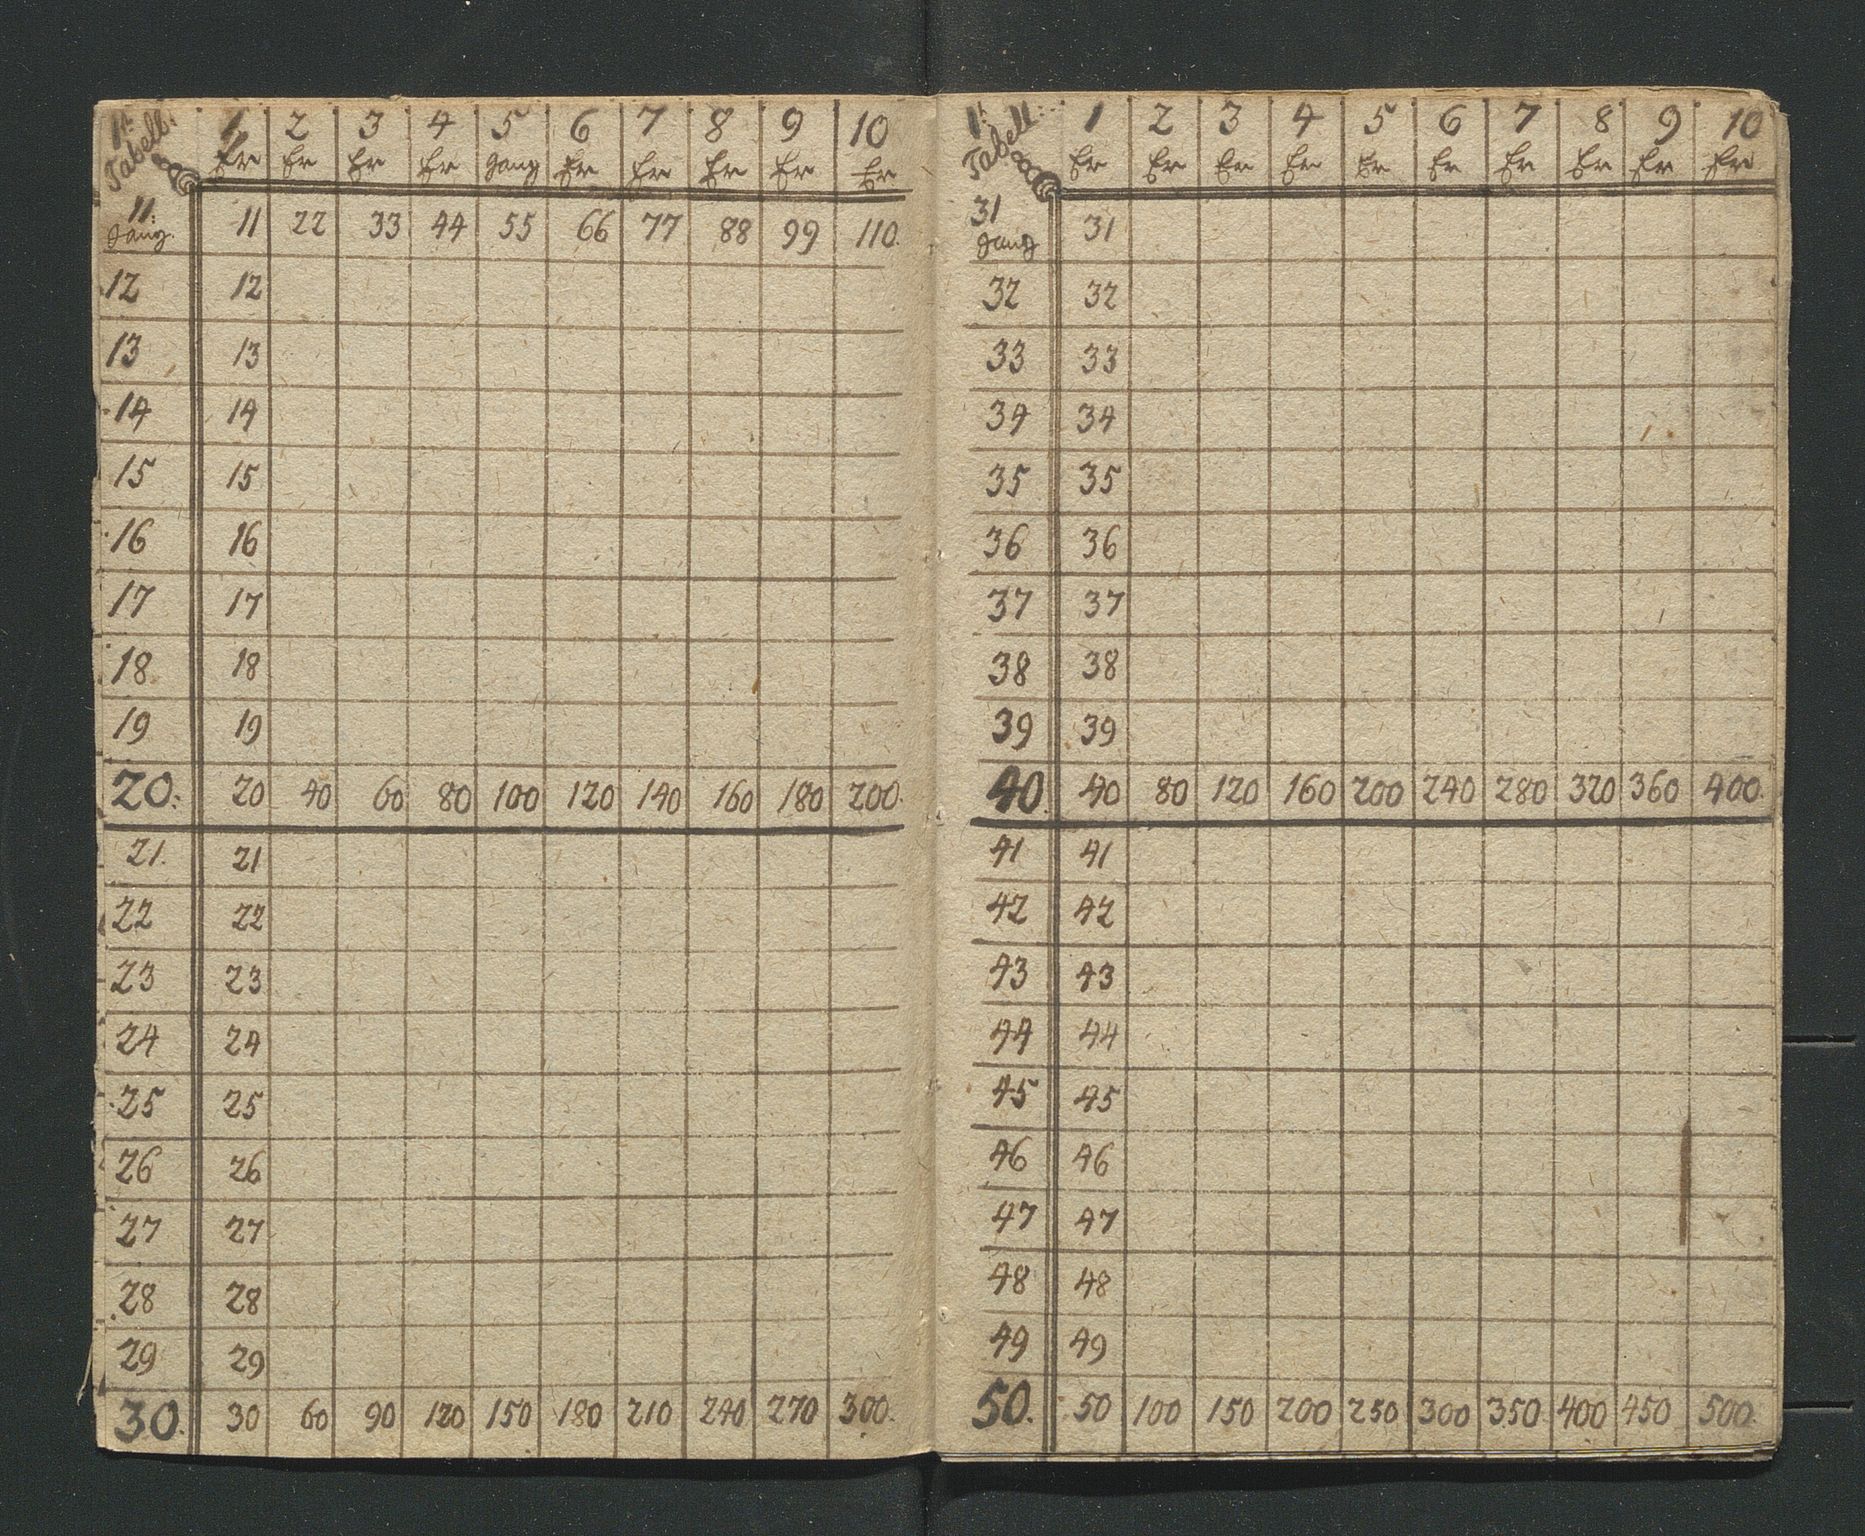 1ste Tabell: 1 2 3 4 5 6 7 8 9 10
Er Er Er Er gang Er Er Er Er Er
11: gang. 11 22 33 44 55 66 77 88 99 110.
12 12
13 13
14 14
15 15
16 16
17 17
18. 18
19 19
20: 20 40 60 80 100 120 140 160 180 200.
21. 21
22 22
23 23
24 24
25 25
26 26
27 27
28 28
29 29
30. 30 60 90 120 150 180 210 240 270 300.
1: Tabell: 1 2 3 4 5 6 7 8 9 10
Er Er Er Er Er Er Er Er Er Er
31 gang 31
32 32
33 33
34 34
35 35
36 36
37 37
38 38
39 39
40. 40 80 120 160 200 240 280 320 360 400.
41 41
42 42
43 43
44 44
45 45
46 46
47 47
48 48
49 49
50. 50 100 150 200 250 300 350 400 450 500.